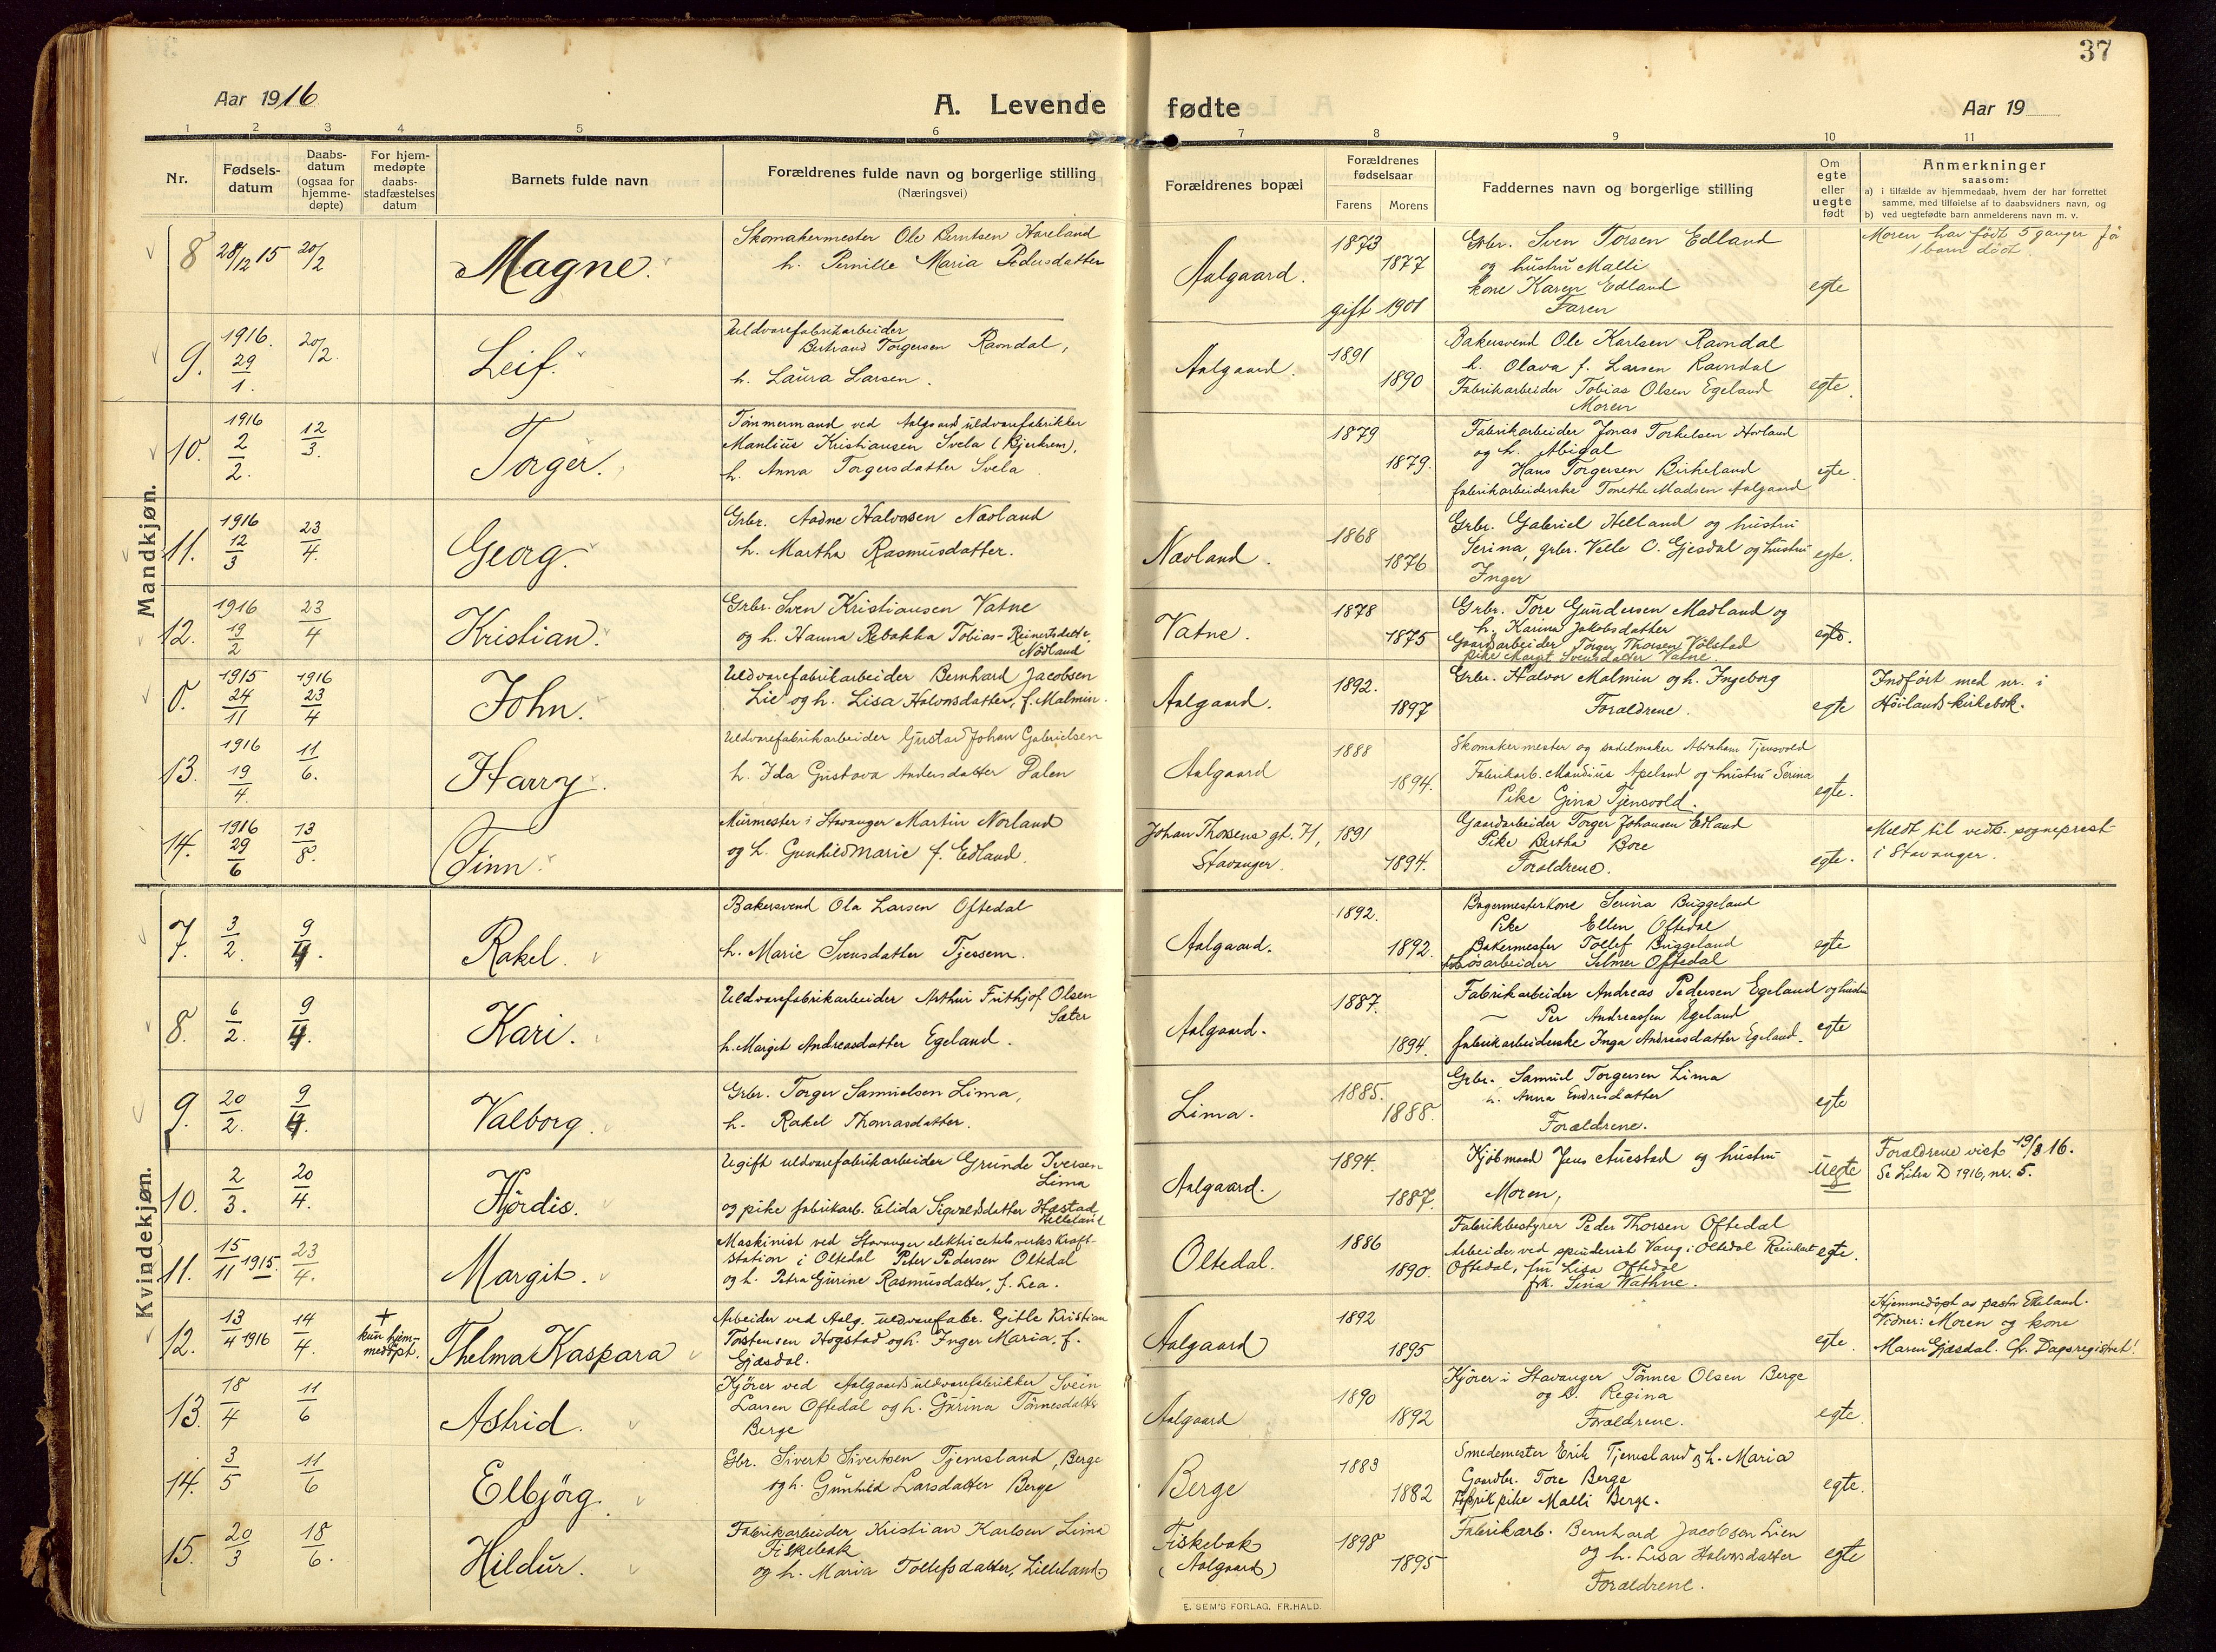 37
Aar 1916
A. Levende fødte
Aar 19
1 2 3 4 5 6 7 8 9 10 11
Nr.
Fødsels-
datum
Daabs-
datum
(ogsaa for
hjemme-
døpte)
For hjem-
medøpte
daabs-
stadfæstelses
datum
Barnets fulde navn
Forældrenes fulde navn og borgerlige stilling
(Næringsvei)
Forældrenes bopæl
Forældrenes
fødselsaar
Farens Morens
Faddernes navn og borgerlige stilling
Om
egte
eller
uegte
født
Anmerkninger
saasom:
a) i tilfælde av hjemmedaab, hvem der har forrettet
samme, med tilføielse af to daabsvidners navn, og
b) ved uegtefødte barn anmelderens navn m. v.
Mandkjøn.
8 28/12 15 20/2
Magne.
Skomakermester Ole Berntsen Hareland
h. Pernille Maria Pedersdatter
Aalgaard.
1873
1877
gift 1901
Grbr. Sven Torsen Edland
og hustru Malli
kone Karen Edland
Faren
egte
Moren har født 5 ganger før
1 barn dødt.
9. 1916. 29/1. 20/2.
Leif.
Uldvarefabrikarbeider
Bertrand Torgersen Ravndal,
h. Laura Larsen.
Aalgaard.
1891
1890
Bakersvend Ole Karlsen Ravndal
h. Olava f. Larsen Ravndal
Fabrikarbeider Tobias Olsen Egeland
Moren
egte.
10. 1916 2/2. 12/3.
Torger.
Tømmermand ved Aalgaard uldvarefabrikker
Manlius Kristiansen Svela (Bjerkrem),
h. Anna Torgersdatter Svela.
1879
1879.
Fabrikarbeider Jonas Torkelsen Hovland
og h. Abigal
Hans Torgersen Birkeland
fabrikarbeiderske Tonethe Madsen Aalgaard
egte.
11. 1916 12/3 23/4.
Georg.
Grbr. Aadne Halvorsen Nævland
h. Martha Rasmusdatter.
Nævland.
1868
1876
Grbr. Gabriel Helland og hustru
Serina, grbr. Velle O. Gjesdal og hustru
Inger
egte.
12. 1916 19/2 23/4
Kristian.
Grbr. Sven Kristiansen Vatne
og h. Hanna Rebekka Tobias-Reinertsdatter,
Nødland
Vatne.
1878
1875
Grbr. Tore Gundersen Madland og
h. Karina Jakobsdatter
Gaardsarbeider Torger Thorsen Vølstad
pike Margt. Svensdatter Vatne.
egte.
0. 1915 24/11 1916 23/4
John.
Uldvarefabrikarbeider Bernhard Jacobsen
Lie og h. Lisa Halvorsdatter, f. Malmin.
Aalgaard.
1892.
1897
Grbr. Halvor Malmin og h. Ingeborg
Forældrene.
egte
Indført med nr. i
Høilands kirkebok.
13. 1916 19/4. 11/6.
Harry.
Uldvarefabrikarbeider Gustav Johan Gabrielsen
h. Ida Gustava Andersdatter Dalen
Aalgaard
1888
1894.
Skomakermester og sadelmaker Abraham Tjensvold
Fabrikarb. Mandius Apeland og hustru Serina
Pike Gina Tjensvold.
egte.
14. 1916 29/6 13/8.
Finn.
Murmester i Stavanger Martin Norland
og h. Gunhild Marie f. Edland.
Johan Thorsens gt. 71,
Stavanger.
1891
1894.
Gaardarbeider Torger Johansen Edland
Pike Bertha Bore
Forældrene.
egte.
Meldt til vedk. sogneprest
i Stavanger.
Kvindekjøn.
7. 3/2. 9/4.
Rakel.
Bakersvend Ola Larsen Oftedal
h. Marie Svensdatter Tjessem.
Aalgaard.
1892.
1892.
Bagermesterkone Serina Buggeland
Pike Ellen Oftedal
Bakermester Tollef Buggeland
Løsarbeider Selmer Oftedal
egte
8. 6/2. 9/4.
Kari.
Uldvarefabrikarbeider Arthur Frithjof Olsen
Sæter
h. Margit Andreasdatter Egeland.
Aalgaard.
1887.
1894.
Fabrikarbeider Andreas Pedersen Egeland og hustru
— Per Andreassen Egeland
fabrikarbeiderske Inga Andreasdatter Egeland.
egte
9. 20/2. 9/4.
Valborg.
Grbr. Torger Samuelsen Lima,
h. Rakel Thomasdatter.
Lima.
1885.
1888.
Grbr. Samuel Torgersen Lima
h. Anna Endresdatter
Forældrene.
egte
10. 2/3. 20/4.
Hjørdis.
Ugift uldvarefabrikarbeider Grunde Iversen
Lima
og pike fabrikarb. Elida Sigvaldsdatter Hæstad,
Helleland
Aalgaard.
1894.
1887.
Kjøbmand Jens Auestad og hustru
Moren,
uegte
Forældrene viet 19/8 16.
Se Litra D 1916, nr. 5.
11. 15/11 1915. 23/4.
Margit.
Maskinist ved Stavanger elektricitetsverks kraft-
station i Oltedal Peter Pedersen Oltedal
og h. Petra Gurine Rasmusdatter, f. Lea.
Oltedal.
1886
1890.
Fabrikbestyrer Peder Thorsen Oftedal
Arbeider ved spinderiet Vaag i Oltedal Reinhart
Oftedal, fru Lisa Oftedal
frk. Sina Wathne.
egte.
12. 13/4 1916 14/4. + kun hjem-
medøpt.
Thelma Kaspara
Arbeider ved Aalg. uldvarefabr. Gitle Kristian
Torstensen Hogstad og h. Inger Maria, f.
Gjesdal.
Aalgaard
1892
1895
egte.
Hjemmedøpt av pastor Ekeland.
Vidner: Moren og kone
Maren Gjesdal. Cfr. Dagsregistret!
13. 18/4 11/6
Astrid.
Kjører ved Aalgaards uldvarefabrikker Svein
Larsen Oftedal og h. Gurina Tønnesdatter
Berge
Aalgaard
1890
1892
Kjører i Stavanger Tønnes Olsen Berge
og h. Regina
Forældrene.
egte.
14. 3/5 11/6
Elbjörg.
Gbr. Sivert Sivertsen Tjemsland, Berge
og h. Gunhild Larsdatter Berge
Berge
1883
1882
Smedemester Erik Tjemsland og h. Maria
Gaardbr. Tore Berge
Fabrikpike Malli Berge.
egte.
15. 20/3 18/6.
Hildur.
Fabrikarbeider Kristian Karlsen Lima
Fiskebæk
og h. Maria Tollefsdatter, Lilleland
Fiskebæk
(Aalgaard)
1898
1895
Fabrikarb. Bernhard Jacobsen Lien
og h. Lisa Halvorsdatter
Forældrene.
egte
E. SEM'S FORLAG. FR.HALD.